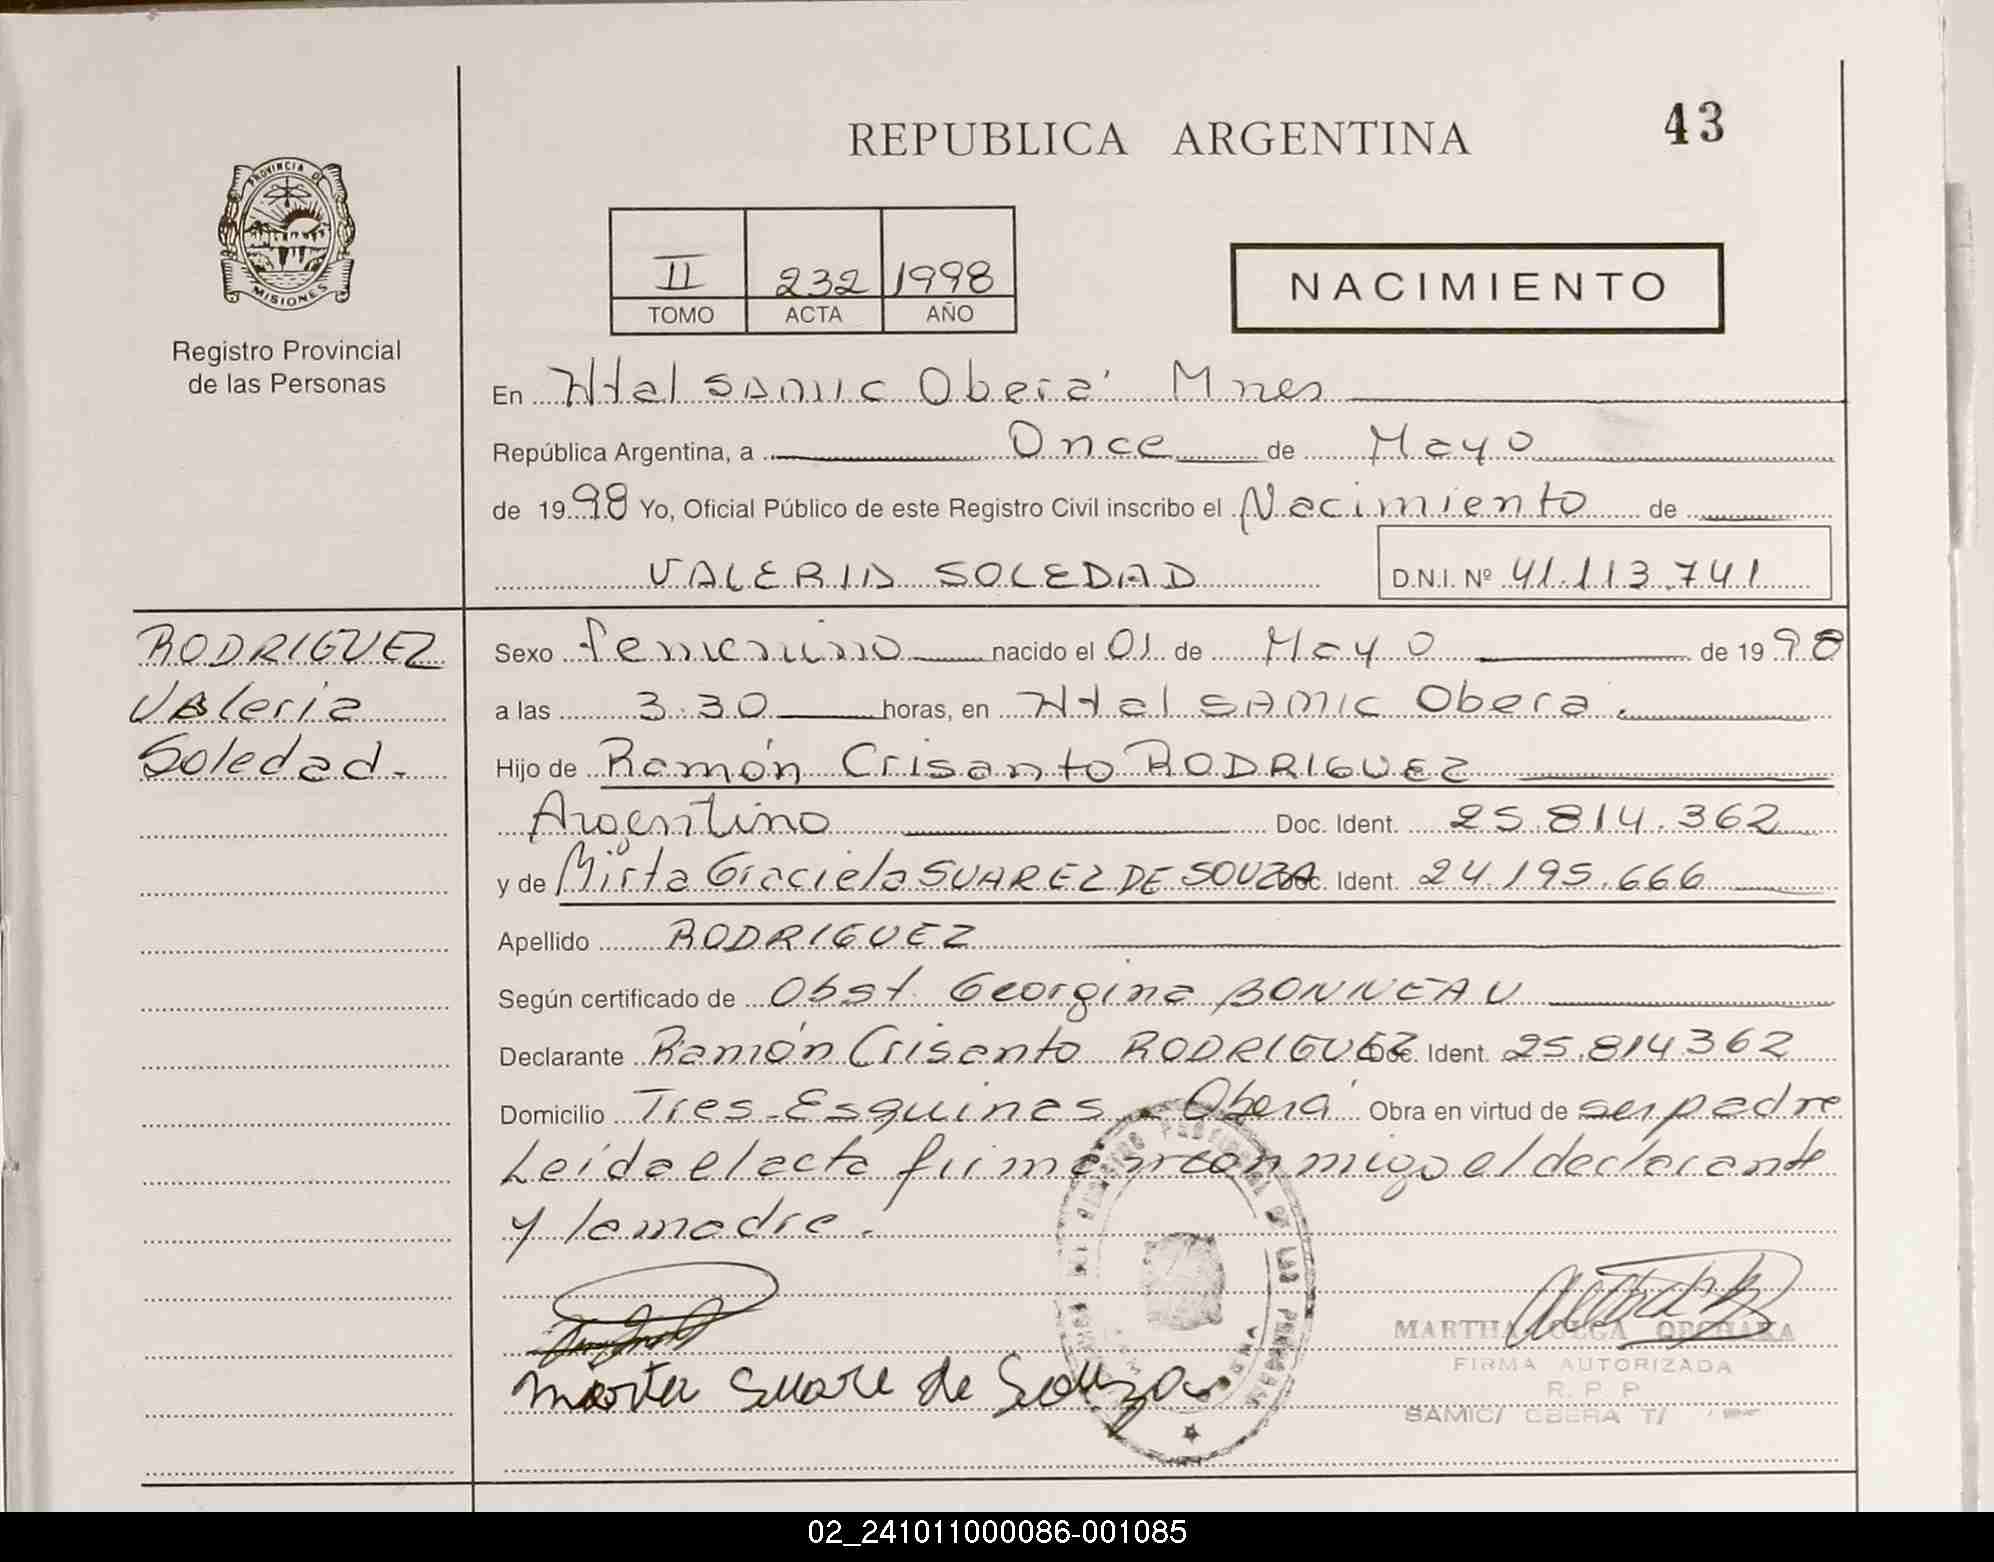 43
REPUBLICA ARGENTINA
PROVINCIA DE
MISIONES
Registro Provincial
de las Personas
II 232 1998
TOMO ACTA AÑO
NACIMIENTO
En Htal SAMIC Oberá Mnes
República Argentina, a Once de Mayo
de 1998 Yo, Oficial Público de este Registro Civil inscribo el Nacimiento de
VALERIA SOLEDAD D.N.I. Nº 41.113.741
RODRIGUEZ
Valeria
Soledad.
Sexo femenino nacido el 01 de Mayo de 1998
a las 3.30 horas, en Htal SAMIC Obera.
Hijo de Ramón Crisanto RODRIGUEZ
Argentino Doc. Ident. 25.814.362
y de Mirta Graciela SUAREZ DE SOUZA Doc. Ident. 24.195.666
Apellido RODRIGUEZ
Según certificado de Obst. Georgina BONNEAU
Declarante Ramón Crisanto RODRIGUEZ Doc. Ident. 25.814362
Domicilio Tres Esquinas - Oberá Obra en virtud de ser padre
Leída el acta firman conmigo el declarante
y la madre.
MARTHA OLGA
FIRMA AUTORIZADA
R. P. P
SAMIC/ OBERA T/
Suare de Souza
02_241011000086-001085